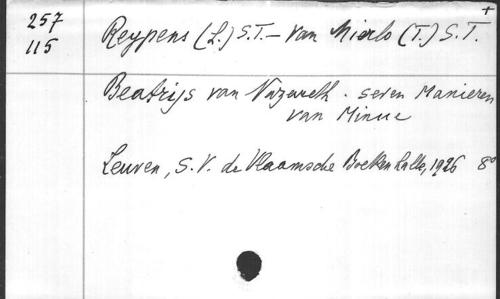 +
257
115
Reypens (L.) S.T. – Van Mierlo (T.) S.T.
Beatrijs van Nazareth. seven Manieren
van Minne
Leuven, S.V. de Vlaamsche Boekenhalle, 1926 8°